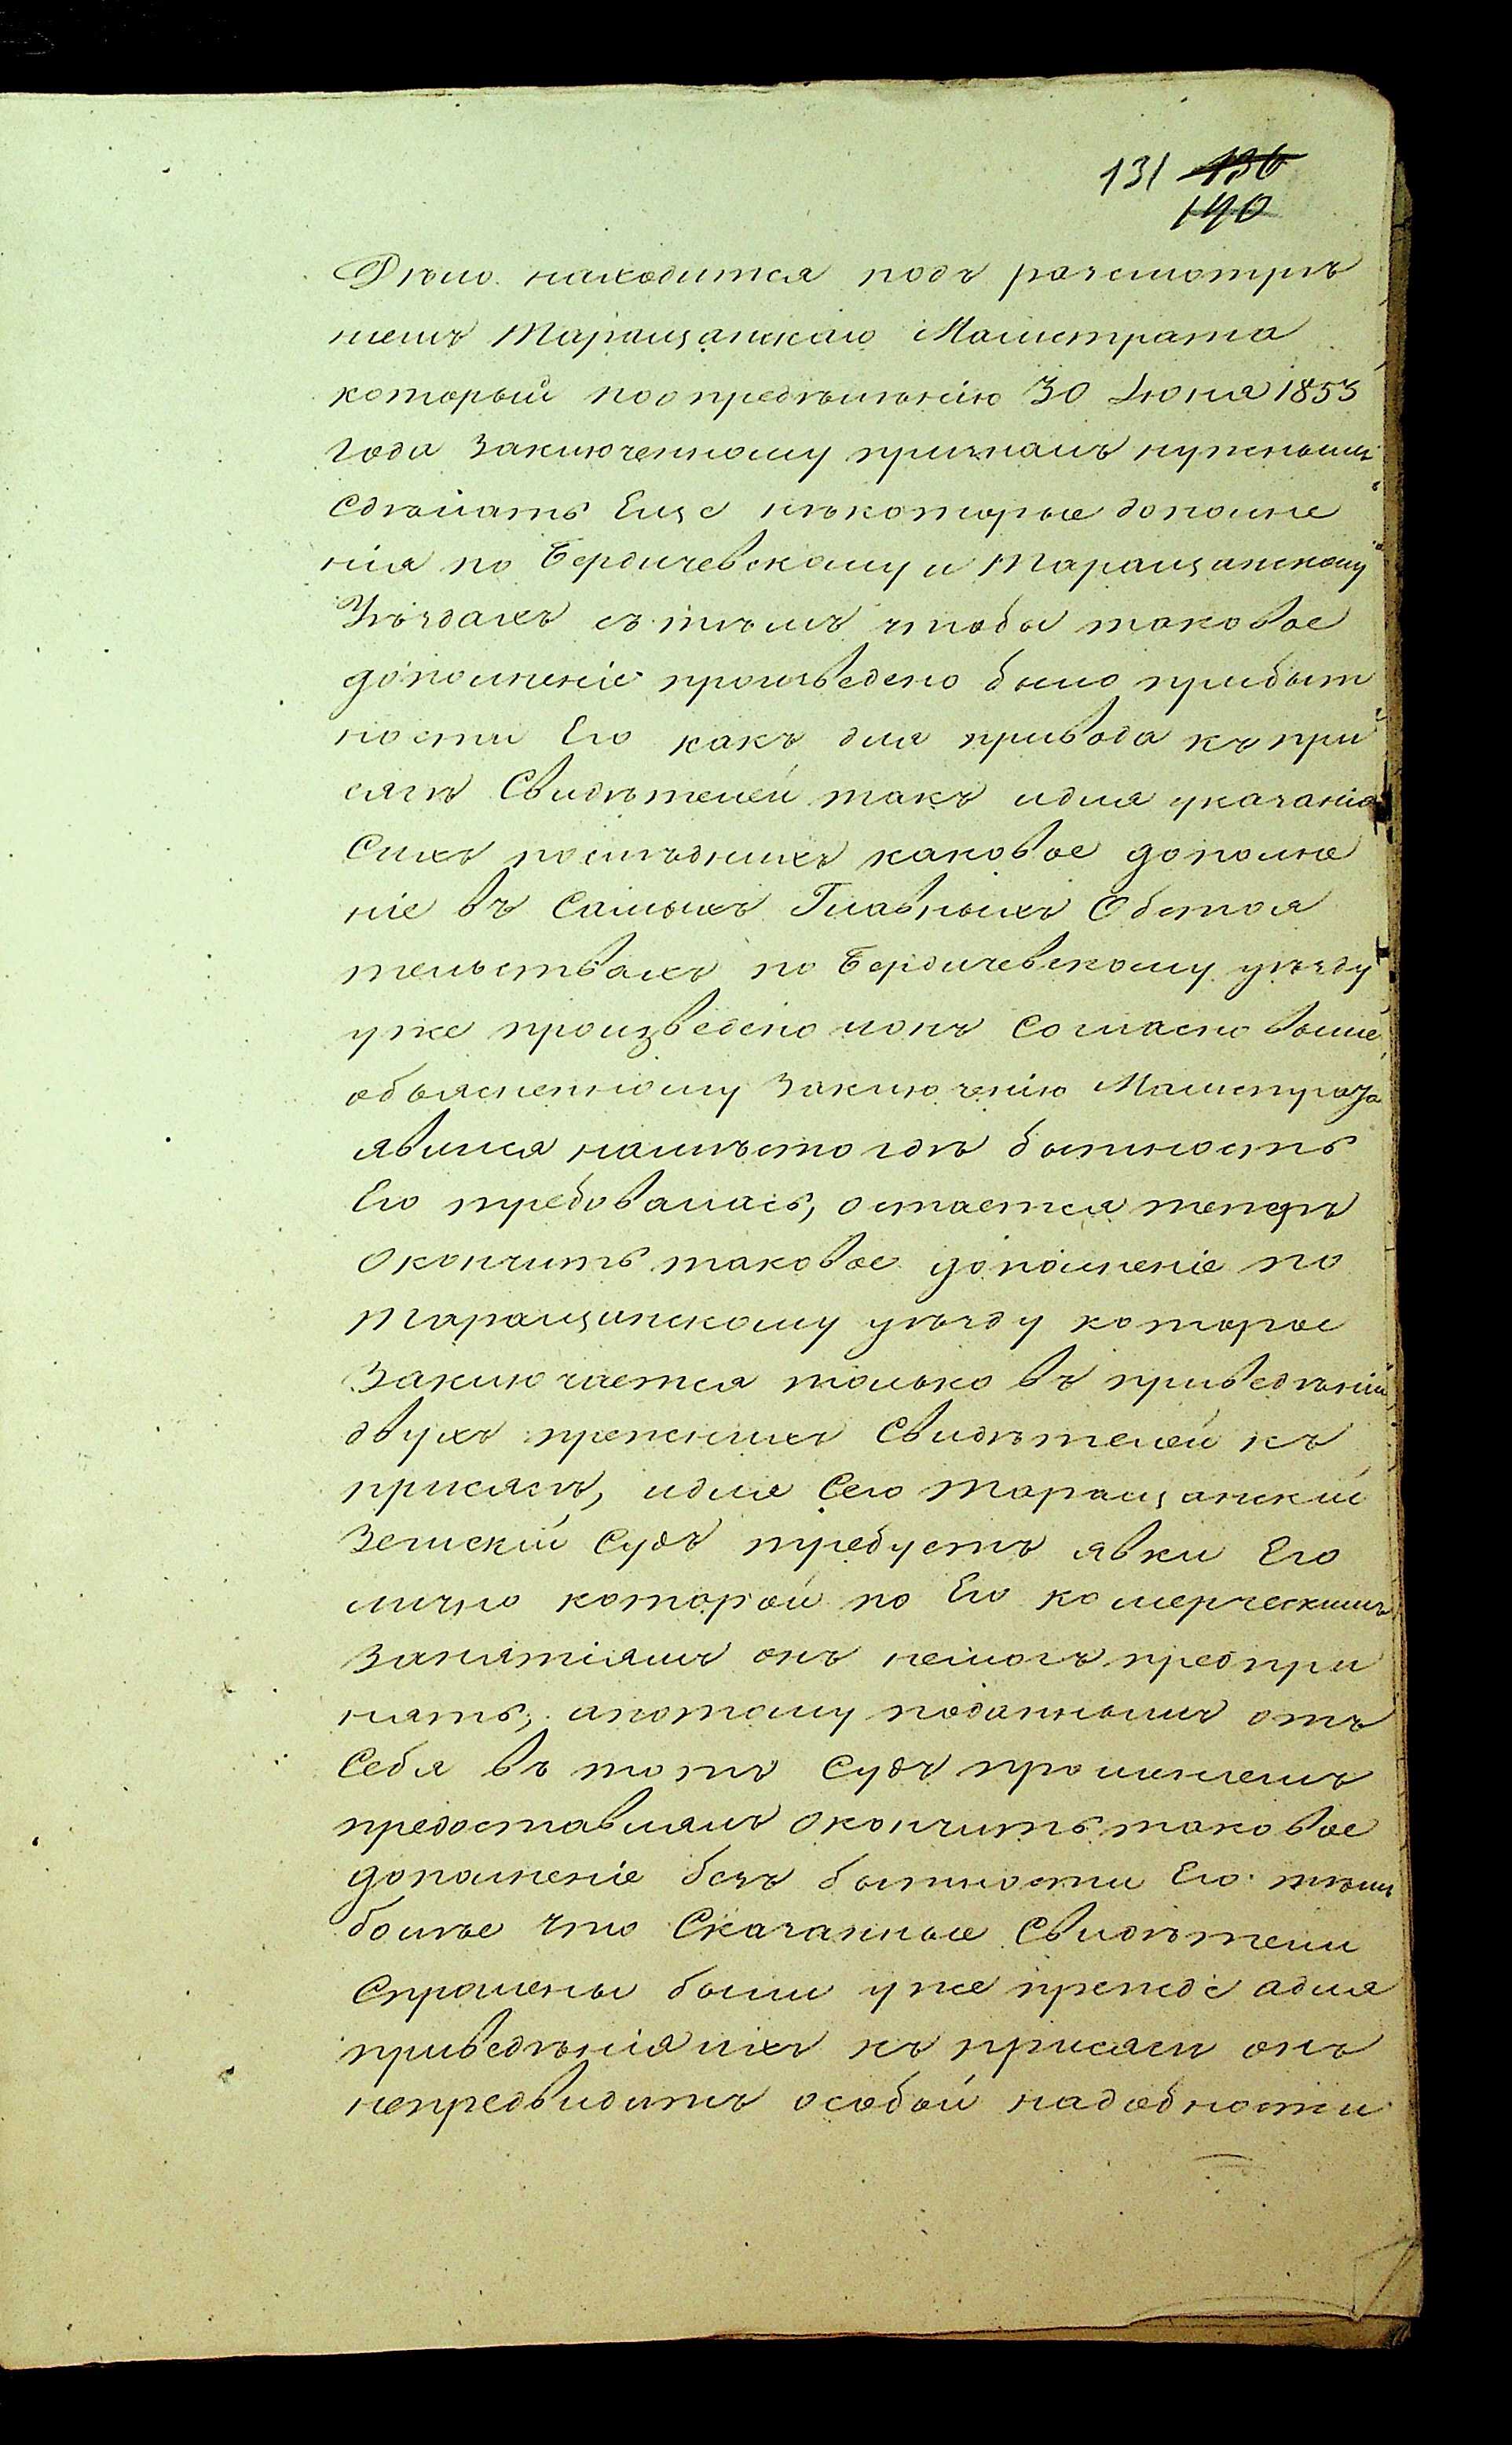 131 136
140
Дѣло находится подъ разсмотрѣ
ніемъ Таращанскаго Магистрата
который поопредѣленію 30 Іюня 1853
года заключенному призналъ нужнымъ
Сдѣлать Еще нѣкоторые дополне
нія по Бердичевскому и Таращанскому
Уѣздахъ сътѣмъ чтобы таковое
дополненіе произведено было прибыт
ности Его какъ для привода къ при
сягѣ Свидѣтелей такъ идля указанія
Сихъ послѣднихъ каковое дополне
ніе въ Самыхъ Главныхъ Обстоя
тельствахъ по Бердичевскому уѣзду
уже произведено ионъ Согласно выше
объясненному заключенію Магистрата
явился намѣсто гдѣ бытность
Его требовалась, остается теперь
Окончить таковое дополненіе по
Таращанскому уѣзду которое
Заключается только въ приведѣніи
двухъ прежнихъ Свидѣтелей къ
присягѣ, идля Сего Таращанскій
Земскій Судъ требуетъ явки Его
лично которой по Его комерческимъ
Занятіямъ онъ немогъ предпри
нять, апотому поданнымъ отъ
Себя въ тотъ Судъ прошеніемъ
предоставлялъ Окончить таковое
дополненіе безъ бытности Его тѣмъ
болѣе что Сказанные Свидѣтели
Спрошены были уже прежде адля
приведѣнія ихъ къ присягѣ онъ
непредвидитъ особой надобности